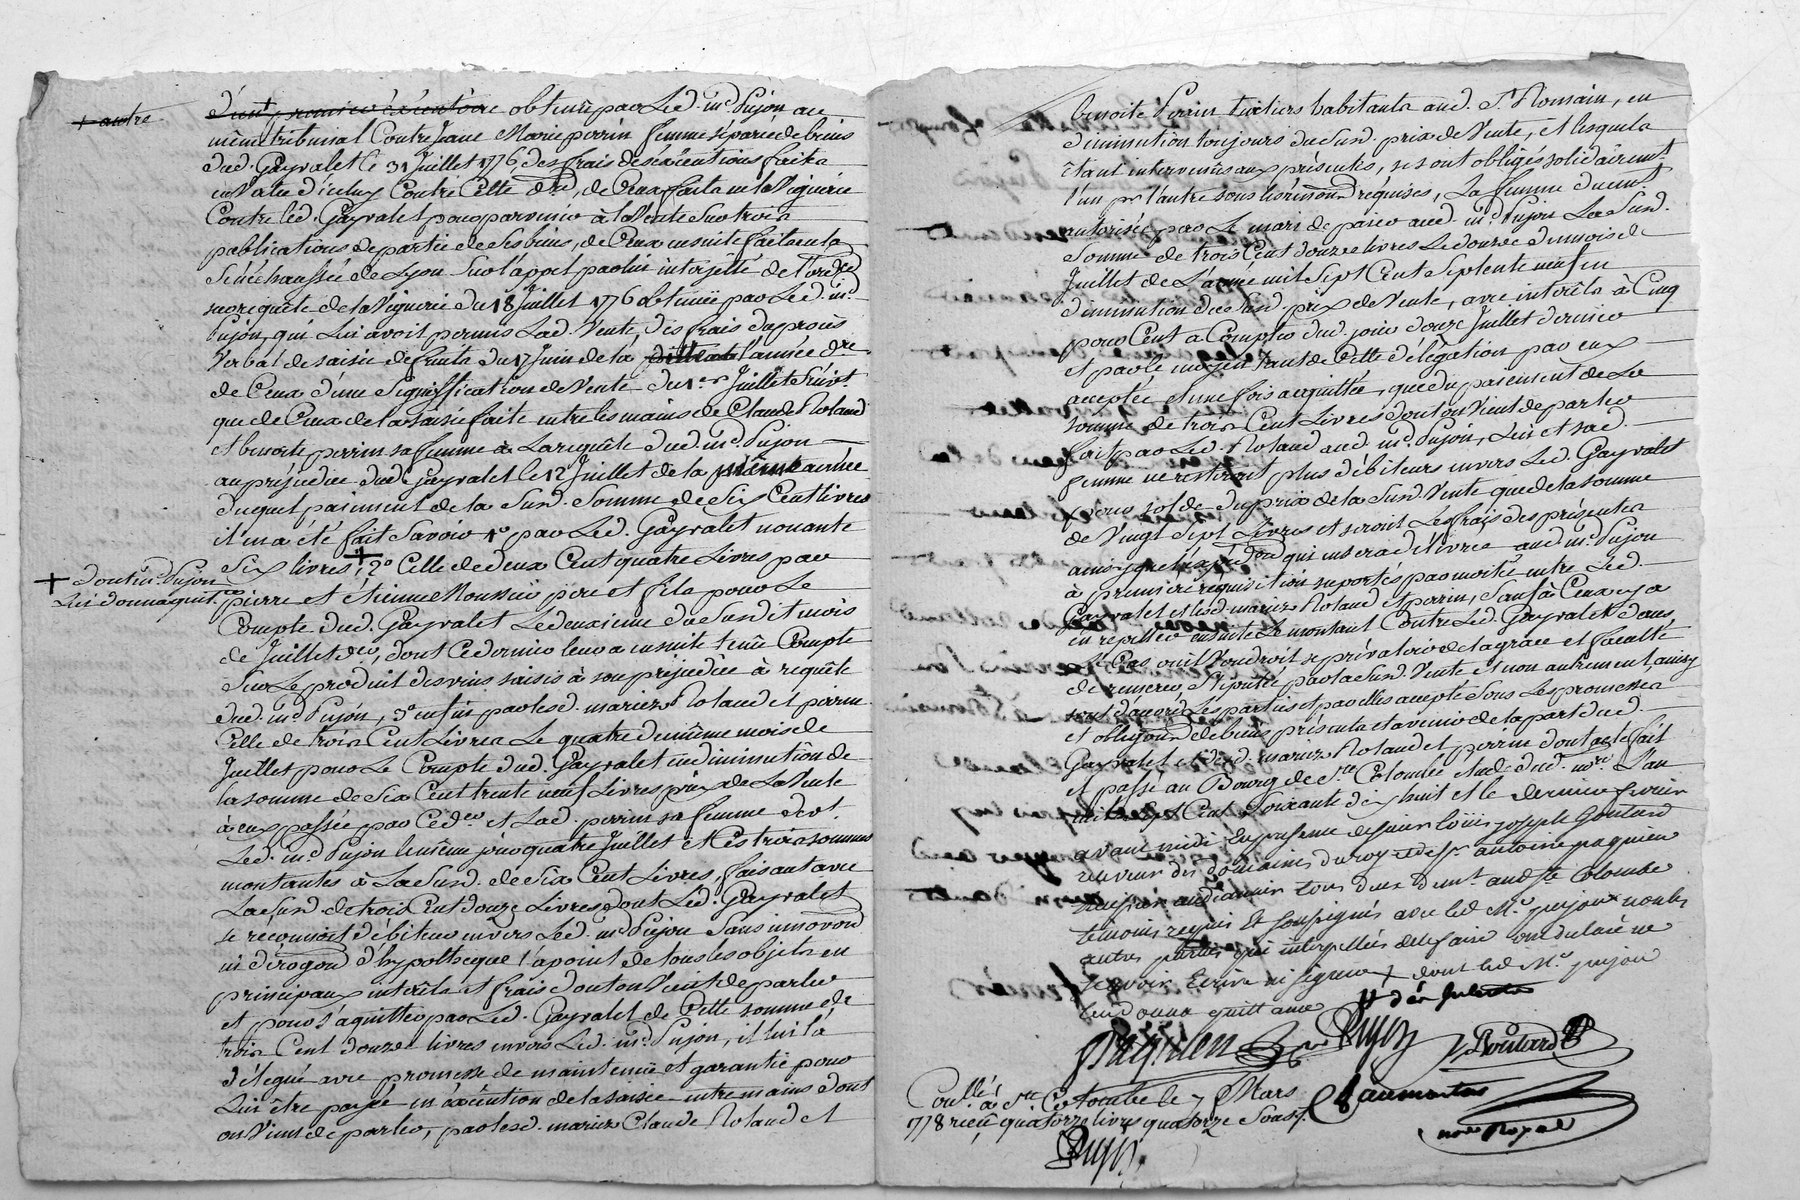 + autre
d'un + premier exécutoire obtenu par led. mr. Pujon au
même tribunal Contre Jane Marie perrin femme séparée de biens
dud. Gayvalet le 31 Juillet 1776, des frais des exécutions faits
en Vertu d'iceluy Contre Cette dre, de Ceux faits en la Viguerie
Contre led. Gayvalet pour parvenir à la Vente Sur trois
publications de partie de Ses biens, de Ceux ensuite faits en la
Sénéchaussée de Lyon Sur l'appel par lui interjetté de l'ord.ce
sur requête de la Viguerie du 18 Juillet 1776 obtenüe par Led. mr.
Pujon, qui Lui avoit permis Lad. Vente, des frais d'un procès
Verbal de saisie de fruits du 17 Juin de la l'année dre
de Ceux d'une Signiffication de Vente du 1er Juillet Suivt.
que de Ceux de la saisie faite entre les mains de Claude Roland
et benoite perrin sa femme à La requête dud. mr. Pujon
au préjudice dud. Gayvalet le 12 Juillet de la même année
duquel paiement de la Susd. Somme de Six Cent livres
il en a été fait Savoir 1° par Led. Gayvalet nonante
Six livres, + 2° Celle de deux Cent quatre Livres par
+ dont led. Pujon
Lui donna quit.ce
pierre et etienne Roussier père et fils pour Le
Compte dud. Gayvalet Le deuxieme du Susdit mois
de Juillet der, dont Ce dernier leur a ensuite tenu Compte
Sur Le produit des vins saisis à son préjudice à requête
dud. mr. Pujon, 3° enfin par lesd. mariez Roland et perrin
Celle de trois Cent Livres Le quatre du même mois de
Juillet pour Le Compte dud. Gayvalet en diminution de
la somme de Six Cent trente neuf Livres prix de La Vente
à eux passée par Ce der et Lad. perrin sa femme dvt.
Led. mr. Pujon le même jour quatre Juillet et Ces trois sommes
montantes à La Susd. de Six Cent Livres, faisant avec
La Susd. de trois Cent douze Livres dont Led. Gayvalet
se reconnoit débiteur envers Led. mr. Pujon Sans innovon
ni dérogon d'hypotheque l'apoint de tous les objets en
principaux intérêts et frais dont on Vient de parler
et pour S'aquitter par Led. Gayvalet de Cette somme de
trois Cent douze livres envers Led. mr. Pujon, il lui a
délégué avec promesse de maintenüe et garantie pour
Lui être payée en exécution de la saisie entre mains dont
on Vient de parler, par lesd. mariez Claude Roland et
benoite Perrin habitants aud. St Romain, en
diminution toujours du Susd. prix de Vente, et lesquels
étant intervenus aux présentes, se sont obligés solidairemt.
l'un pr l'autre sous les requises, La femme duemt.
autorisée par Le mari de paier aud. mr. Pujon La Susd.
Somme de trois Cent douze livres Le douze du mois de
Juillet de L'année mil Sept Cent Septente neuf en
diminution du Susd. prix de Vente, avec intérêts à Cinq
pour Cent à Compter dud. jour douze Juillet dernier
et par le moyen tant de Cette délégation par eux
acceptée et une fois acquittée, que du paiement de La
somme de trois Cent Livres dont on Vient de parler
fait par Led. Roland aud. mr. Pujon, Lui et sad.
femme ne resteront plus débiteurs envers Led. Gayvalet
pour solde du prix de la Susd. Vente que de la somme
de Vingt Sept Livres et seront Les frais des présentes
ainsi que l'expédon qui en sera délivrée aud. mr. Pujon
à premiere requisition suportés par moitié entre Led.
Gayvalet et lesd. mariez Roland et perrin, Sauf à Ceux cy à
en répéter ensuite Le montant Contre Led. Gayvalet dans
Le Cas ou il Voudroit se prévaloir de la grace et faculté
de remeré Stipulée par la Susd. Vente et non autrement, ainsy
sont d'accord Les parties et par elles accepté Sous Les promesses
et obligons de biens présents et avenir de la part dud.
Gayvalet et desd. mariez Roland et perrin dont acte fait
et passé au Bourg de Ste Colombe étude dud. nore L'an
mil Sept Cent Soixante dix huit et le dernier fevrier
avant midi, En presence de sieur loüis joseph Boutard
receveur des domaines du roy et de sr. antoine paquien
tous deux demt. aud. Ste Colombe
temoins requis et soussignés avec led Mr. pujon non les
autres parties qui interpellés de le faire ont declaré ne
sçavoir Ecrire ni signer + dont led Mr. pujon
leur donna quittance
Paquien Pujon Boutard
Chaumartin
nore Royal
Conllé à Ste Colombe le 7 Mars
1778 rceu quatorze livres quatorze Sous
Pujon